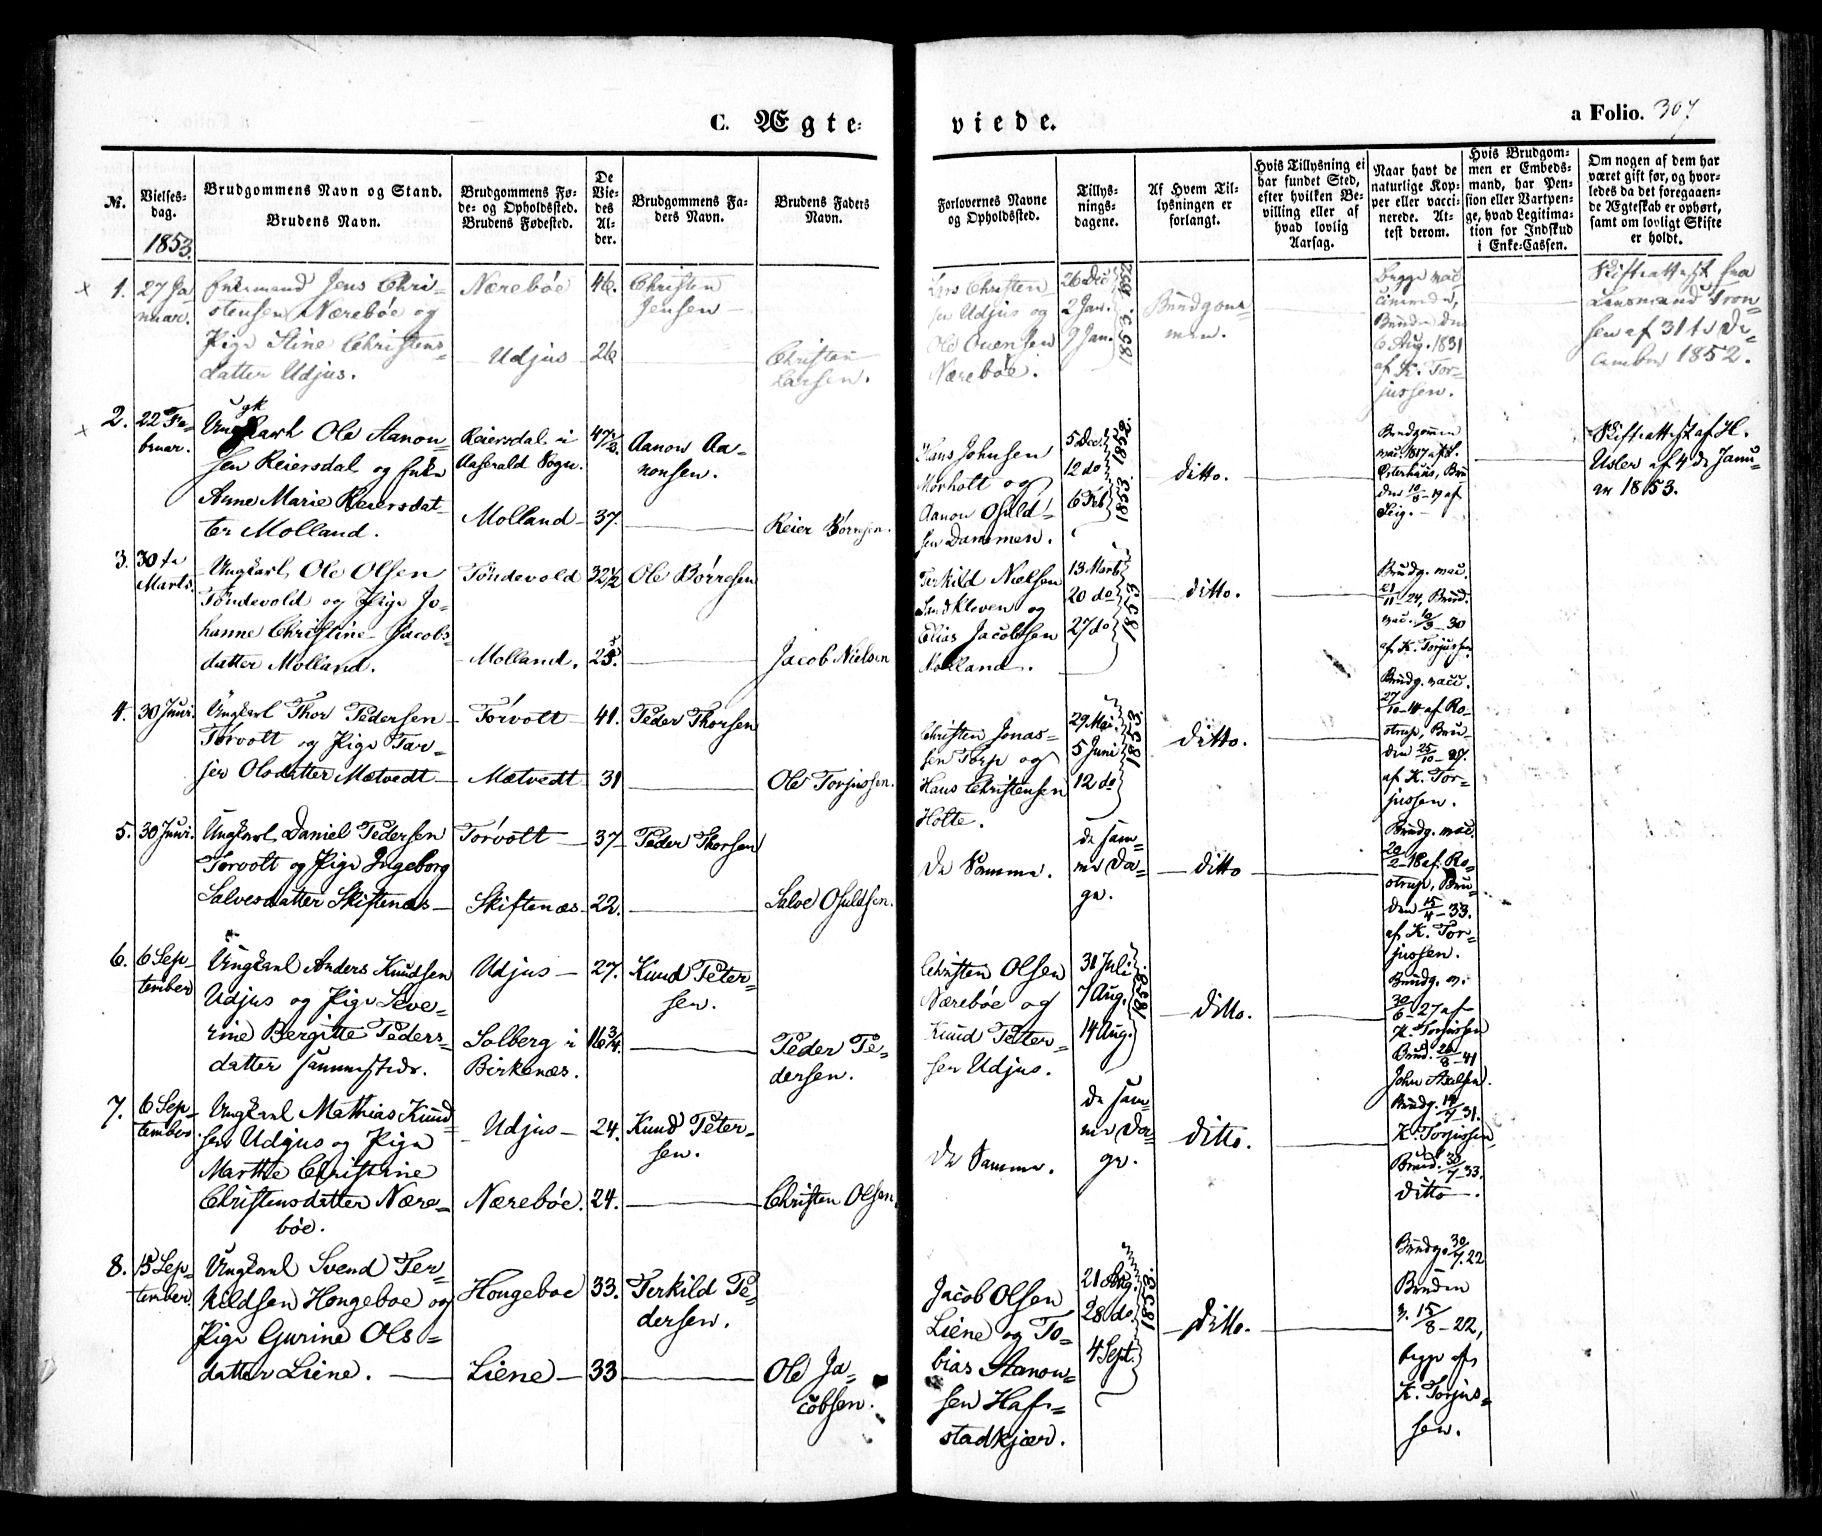 C. Ægte-
viede.
a Folio. 307.
№.
Vielses-
dag.
1853.
Brudgommens Navn og Stand.
Brudens Navn.
Brudgommens Fø-
de- og Opholdssted.
Brudens Fødested.
De
Vie-
des
Al-
der.
Brudgommens Fa-
ders Navn.
Brudens Faders
Navn.
Forlovernes Navne
og Opholdssted.
Tillys-
nings-
dagene.
Af Hvem Til-
lysningen er
forlangt.
Hvis Tillysning ei
har fundet Sted,
efter hvilken Be-
villing eller af
hvad lovlig
Aarsag.
Naar havt de
naturlige Kop-
per eller vacci-
nerede. At-
test derom.
Hvis Brudgom-
men er Embeds-
mand, har Pen-
sion eller Vartpen-
ge, hvad Legitima-
tion for Indskud
i Enke-Cassen.
Om nogen af dem har
været gift før, og hvor-
ledes da det foregaaen-
de Ægteskab er ophørt,
samt om lovligt Skifte
er holdt.
1. 27 Ja-
nuar.
Enkemand Jens Chri-
stensen Nærebøe og
Pige Stine Christens-
datter Udjus.
Nærebøe
Udjus
46.
26
Christen
Jensen
Christen
Larsen.
Lars Christen-
sen Udjus og
Ole Ouensen
Nærebøe.
26 Dec
2 Jan.
9 Jan.
1852
1853.
Brudgom-
men.
Begge vac-
cinerede,
Bruden den
6 Aug. 1831
af K. Tor-
jussen.
Skifteattest fra
Lensmand Tron-
sen af 31te De-
cember 1852.
2. 22 Fe-
bruar.
Ungkarl Ole Aanon-
sen Reiersdal og Enke
Anne Marie Reiersdat-
ter Molland.
Reiersdal i
Aaserald Sogn.
Molland
47½
37.
Aanon Aa-
nonsen.
Reier Børresen.
Hans Johnsen
Morholt og
Aanon Osuld-
sen Dammen.
5 Dec.
12 do
6 Feb
1852.
1853
ditto.
Brudgommen
vac. 1817 af S.
Østerhuus, Bru
den 10/8 - 19 af
Seig.
Skifteattest af H.
Usler af 4de Janu-
ar 1853.
3. 30te
Marts.
Ungkarl Ole Olsen
Töndevold og Pige Jo-
hanne Christine Jacobs
datter Molland.
Töndevold
Molland.
32½
25.
Ole Börresen
Jacob Nielsen
Terkild Nielsen
Sandkleven og
Elias Jacobsen
Molland.
13 Marts
20 do
27 do
1853
ditto.
Brudg. vac.
21/11 - 24, Brud.
vac. 10/9 - 30
af K. Torjussen.
4. 30 Juni.
Ungkarl Thor Pedersen
Torvolt og Pige Tar-
jer Olsdatter Mætvedt
Torvolt
Mætvedt
41.
31
Peder Thorsen
Ole Torjussen.
Christen Jonas-
sen Torp og
Hans Christensen
Holte.
29 Mai.
5 Juni
12 do
1853.
ditto.
Brudg. vacc.
27/10 - 14 af Ro-
strup, Bru-
den 25/10 - 27.
af K. Tor-
jussen.
5. 30 Juni.
Ungkarl Daniel Pedersen
Torvolt og Pige Ingeborg
Salvesdatter Skiftenæs
Torvolt
Skiftenæs
37
22.
Peder Thorsen
Salve Osuldsen.
De Samme.
de sam-
me Da-
ge.
ditto
Brudg. vac.
20/2 - 18 af Ro-
strup, Bru-
den 15/4 - 33.
af K. Tor-
jussen.
6. 6 Sep-
tember
Ungkarl Anders Knudsen
Udjus og Pige Seve-
rine Bergitte Peders-
datter sammesteds.
Udjus
Solberg i
Birkenæs.
27.
16¾.
Knud Peter-
sen.
Peder Pe-
dersen.
Christen Olsen
Nærebøe og
Knud Peter-
sen Udjus.
31 Juli
7 Aug.
14 Aug.
1853.
ditto.
Brudg. v.
30/6 - 27 af
K. Torjussen
Brud. 26/8 - 41
John Axelsen.
7. 6 Sep-
tember.
Ungkarl Mathias Knud-
sen Udjus og Pige
Marthe Christine
Christensdatter Nære-
bøe.
Udjus
Nærebøe.
24.
24.
Knud Peter-
sen.
Christen Olsen.
De Samme.
de sam-
me Da-
ge.
ditto.
Brudg. 19/7 31.
K. Torjussen
Brud. 30/7 33.
ditto.
8. 15 Sep-
tember.
Ungkarl Svend Ter-
kildsen Hongeboe og
Pige Gurine Ols-
datter Liene.
Hongeboe
Liene
33.
33
Terkild Pe-
dersen.
Ole Ja-
cobsen.
Jacob Olsen
Liene og To-
bias Aanon-
sen Hafr-
stadkjær.
21 Aug.
28 do.
4 Sept.
1853.
ditto.
Brudg. 30/7. 22
Bruden
v. 15/8 - 22,
begge af
K. Torjus-
sen.